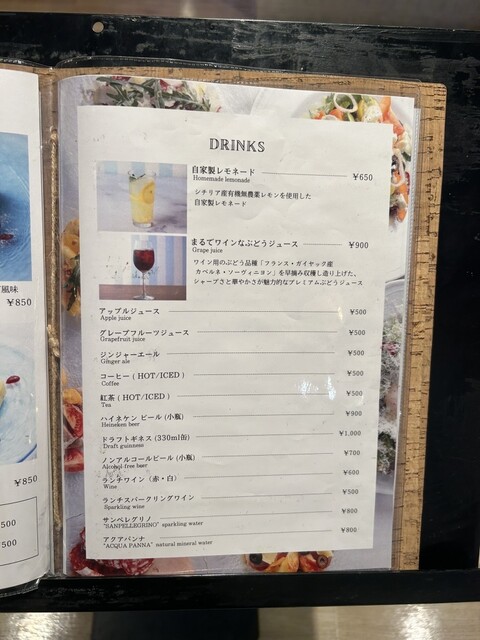 DRINKS
自家製レモネード ¥650
Homemade lemonade
シチリア産有機無農薬レモンを使用した
自家製レモネード
まるでワインなぶどうジュース ¥900
Grape juice
ワイン用のぶどう品種「フランス・ガイヤック産
カベルネ・ソーヴィニヨン」を早摘み収穫し造り上げた、
シャープさと華やかさが魅力的なプレミアムぶどうジュース
アップルジュース ¥500
Apple juice
グレープフルーツジュース ¥500
Grapefruit juice
ジンジャーエール ¥500
Ginger ale
コーヒー ( HOT/ICED ) ¥500
Coffee
紅茶 ( HOT/ICED ) ¥500
Tea
ハイネケン ビール (小瓶) ¥900
Heineken beer
ドラフトギネス (330ml缶) ¥1,000
Draft guinness
ノンアルコールビール (小瓶) ¥700
Alcohol-free beer
ランチワイン（赤・白） ¥600
Wine
ランチスパークリングワイン ¥500
Sparkling wine
サンペレグリノ ¥800
"SANPELLEGRINO" sparkling water
アクアパンナ ¥800
"ACQUA PANNA" natural mineral water
風味
¥850
¥850
500
500